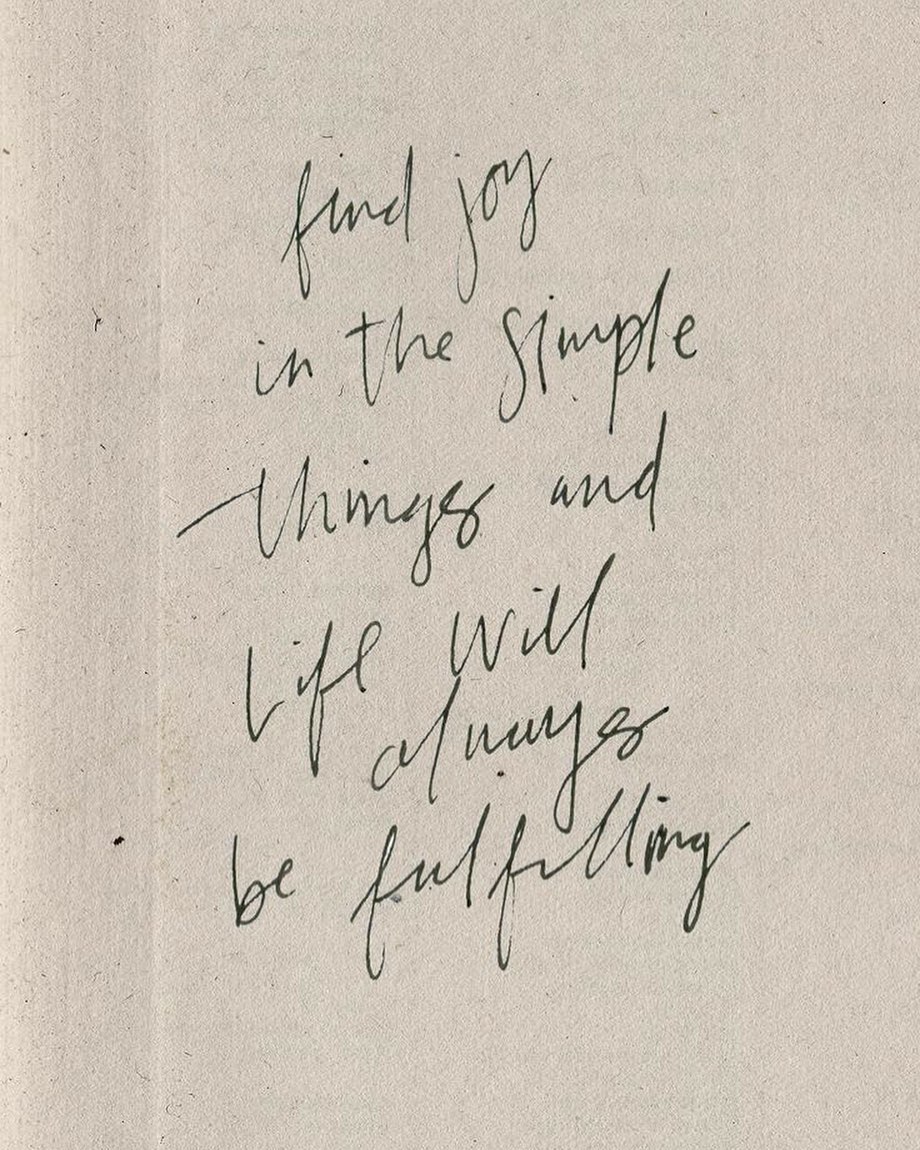 find joy
in the simple
things and
Life Will
always
be fulfilling